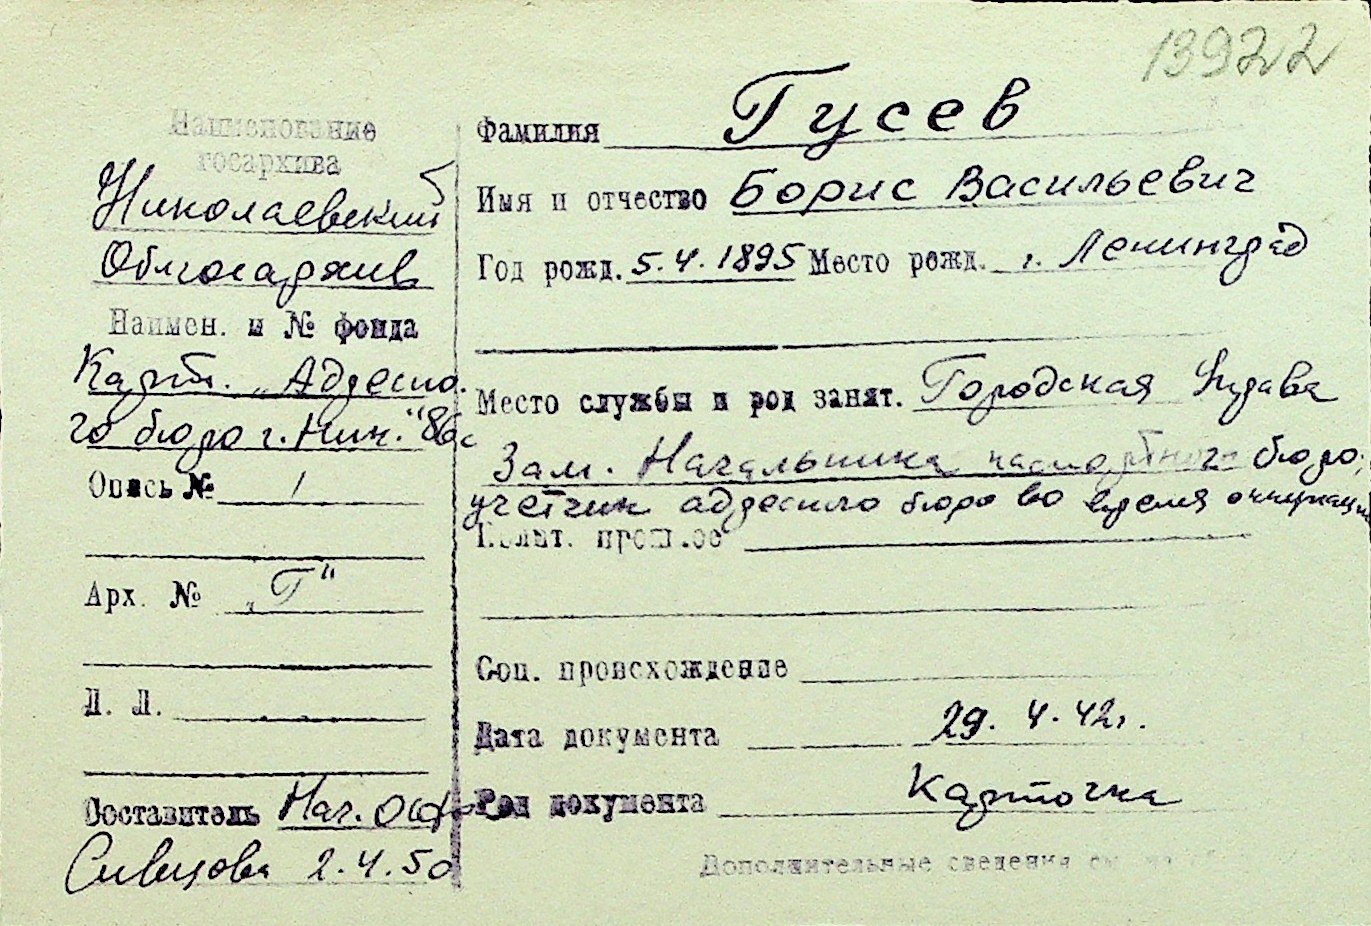 13922
Наименование
госархива
Николаевский
Облгосархив
Наимен. и № фонда
Карт. „Адресно-
го бюро г. Ник.“
Опись № 1
Арх. № „Г“
Л. Л.
Составитель Нач.
Сивцова 2.4.50
Фамилия Гусев
Имя и отчество Борис Васильевич
Год рожд. 5.4.1895 Место рожд. г. Ленинград
Место службы и род занят. Городская Управа
Зам. Начальника паспортного бюро,
учетчик адресного бюро во время оккупации
Полит. прошлое
Соц. происхождение
Дата документа 29.4.42г.
Род документа Карточка
Дополнительные сведения см. на